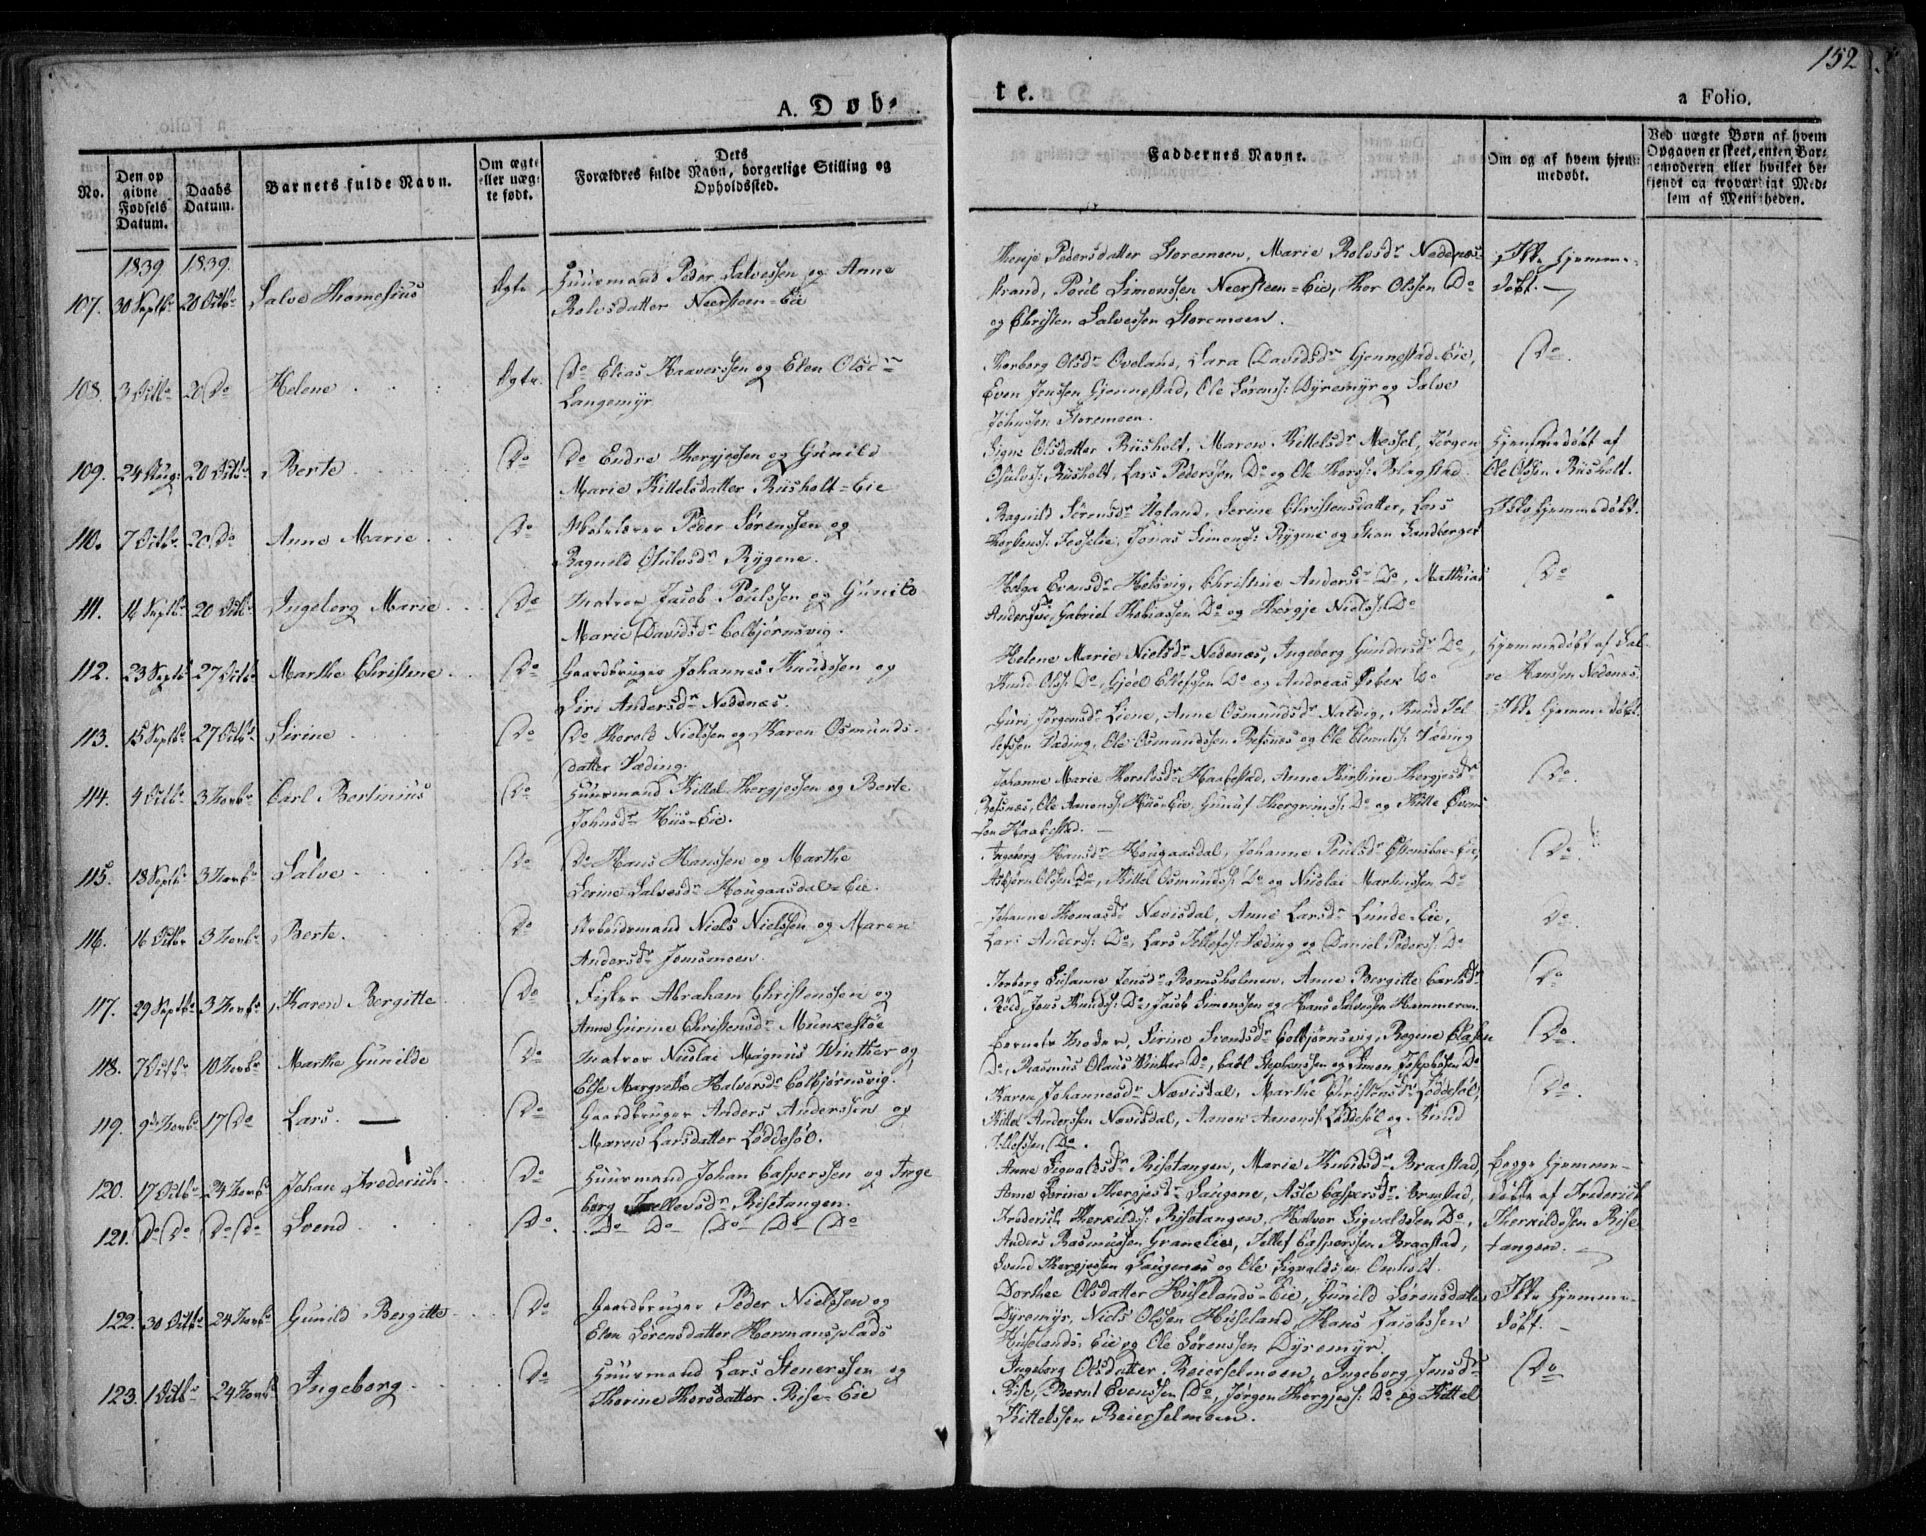 152
A. Døb-
te.
a Folio.
No.
Den op
givne
Fødsels
Datum.
Daabs
Datum.
Barnets fulde Navn.
Om ægte
eller uæg-
te født.
Dets
Forældres fulde Navn, borgerlige Stilling og
Opholdssted.
Faddernes Navne.
Om og af hvem hjem-
medøbt.
Ved uægte Børn af hvem
Opgaven er skeet, enten Bar-
nemoderen eller hvilket be-
kjendt og troværdigt Med-
lem af Menigheden.
1839 1839.
107. 30 Septbr 20 Octbr Salve Thomesius Ægte Huusmand Peder Salvessen og Anne
Rolvsdatter Neersteen-Eie
Pedersdatter Storemoen, Marie Rolvsdr Nedenæs-
strand, Poul Simonssen Neersteen-Eie, Thor Olssen Do
og Christen Salvessen Storemoen.
Ikke hjemme-
døbt.
108. 3 Octbr 20 Do Helene Ægte. Do Elias Raaverssen og Elen Olsdr
Langemyr
Thorborg Olsdr Oveland, Sara Davidsdr Gjennestad-Eie,
Even Jenssen Gjennestad, Ole Sørens: Dyremyr og Salve
Johnssen Storemoen.
Do.
109. 24 Aug: 20 Octbr Berte Do Do Endre Thergjessen og Gunild
Marie Kittelsdatter Riisholt-Eie
Signe Olsdatter Riisholt, Maren Kittelsdr Messel, Jørgen
Osulvs: Riisholt, Lars Pederssen Do og Ole Thors: Bligstad
Hjemmedøbt af
Ole Olssen Riisholt.
110. 7 Octbr. 20 Do Anne Marie Do Peder Sørenssen og
Ragnild Osulvsdr Rygene.
Ragnild Sørensdr Igland, Serine Christensdatter, Lars
Thorbens: Fosselie, Jonas Simons: Rygene og Sandberget
Ikke hjemmedøbt.
111. 16 Septbr 20 Octbr Ingeborg Marie Do Matros Jacob Poulssen og Gunild
Marie Davidsdr Colbjørnsvig.
Helga Evensdr Helsvig, Christine Andersdr Do, Matthias
Anderssen, Gabriel Thobiassen Do og Thergje Niels: Do
Do
112. 23 Septbr 27 Octbr Marthe Christine Do Gaardbruger Johannes Knudssen og
Siri Andersdr Nedenæs.
Helene Marie Nielsdr Nedenæs, Ingeborg Gundersdr Do,
Knud Ols: Do, Gjoel Ellefssen Do og Andreas Do
Hjemmedøbt af Sal-
ve Hanssen Nedenæs.
113. 15 Septbr 27 Octbr Sirine Do Do Thorold Nielssen og Karen Osmunds-
datter Væding.
Guri Jørgensdr Liene, Anne Osmundsdr Natvig, Knud Tel
lefssen Væding, Ole Osmundssen Refsnæs og Ole Væding
Ikke hjemmedøbt.
114. 4 Octbr 3 Novbr Carl Bertinius Do Huusmand Kittel Thergjessen og Berte
Johnsdr Hiis-Eie.
Johanne Marie Thoroldsdr Haabestad, Anne Kirstine Thergjesdr
Refsnæs, Ole Aanons: Hiis-Eie, Thorgrims: Do og
sen Haabestad.
Do.
115. 18 Septbr 3 Novbr Salve Do Do Hans Hanssen og Marthe
Serine Salvesdr Hougaasdal-Eie.
Ingeborg Hansdr Hougaasdal, Johanne Poulsdr Østensboe-Eie,
Asbjørn Olssen Do, Kittel Osmunds: Do og Nicolai Martinssen Do
Do.
116. 16 Octbr 3 Novbr Berte. Do Arbeidsmand Niels Nielssen og Maren
Andersdr Jomsmoen.
Johanne Thomasdr Nævisdal, Anne Larsdr Lunde-Eie,
Lars Anderss: Do, Lars Tellefs: Væding og Daniel Peders: Do
Do.
117. 29 Septbr 3 Novbr Karen Bergitte Do Fisker Abraham Christenssen og
Anne Gurine Christensdr Munkestøe
Susanne Jensdr Bomsholmen, Anne Bergitte Carlsdr
Jens Knuds: Do, Jacob Simonssen og Hans Salvessen Hammeren.
Do
118. 7 Octbr 10 Novbr Marthe Gunilde Do Matros Nicolai Magnus Winther og
Else Margrethe Halvorsdr Colbjørnsvig.
Barnets Moder, Sirine Svendsdr Colbjørnsvig, Regine Olassen
Do, Rasmus Olaus Winther Do, Carl Stephanssen og Simon Josephssen Do
Do.
119. 9de Novbr 17 Do Lars. Do Gaardbruger Anders Anderssen og
Maren Larsdatter Løddesøl.
Karen Johannesdr Nævisdal, Marthe Christensdr Løddesøl,
Kittel Anderssen Nævisdal, Aanon Aanons: Løddesøl og Knud
Tellefssen Do.
Do.
120. 17 Octbr 24 Novbr Johan Frederich Do Huusmand Johan Casperssen og Inge
borg Tellevsdr Risetangen.
Anne Sigvaldsdr Risetangen, Marie Knudsdr Braastad
Anne Serine Thergjesdr Longene, Asle Caspersdr Braastad,
Begge hjemme-
døbte af Frederich
121. Do Do Do Do Svend Do. Do Do Do Do Do
Frederich Therkilds: Risetangen, Halvor Sigvaldssen Do,
Anders Rasmussen Granelie, Tellef Casperssen Braastad,
Svend Thergjessen Longenæs og Ole Sigvaldssen Omholt.
Therkildssen Rise
tangen.
122. 30 Octbr 24 Novbr Gunild Bergitte Do Gaardbruger Peder Nielssen og
Elen Sørensdatter Hermansplads
Dorthee Olsdatter Huselands-Eie, Gunild Sørensdatter
Dyremyr, Niels Olssen Huseland, Hans Jacobssen
Huselands-Eie og Ole Sørenssen Dyremyr.
Ikke hjemme-
døbt.
123. 1 Octbr 24 Novbr Ingeborg Do Huusmand Lars Stenerssen og
Thorine Thorsdatter Rise-Eie
Ingeborg Olsdatter Beierholmoen, Ingeborg Jensdr
Rise, Bernt Evenssen Do, Jørgen Thergjess: Do og Kittel
Kittelssen Beierholmoen.
Do